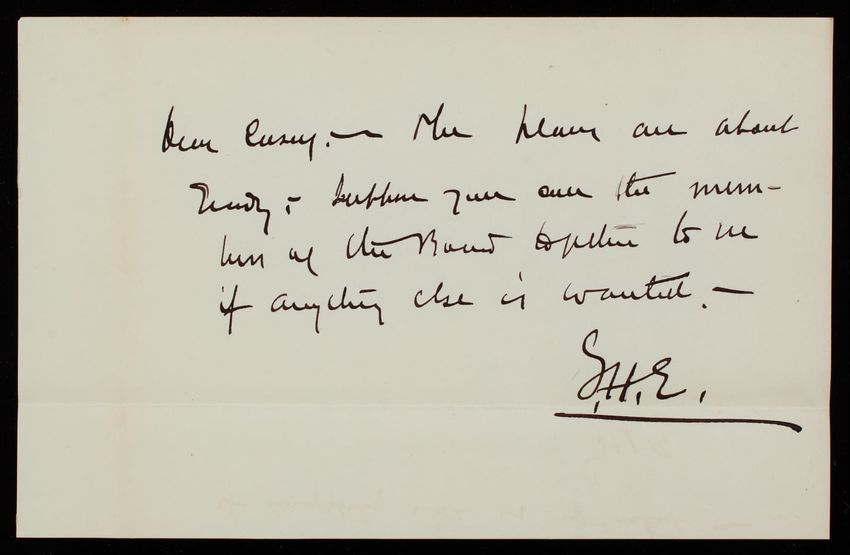 Dear Casey. — The plans are about
ready; — suppose you call the mem-
bers of the Board together to see
if anything else is wanted. —
G.H.E.